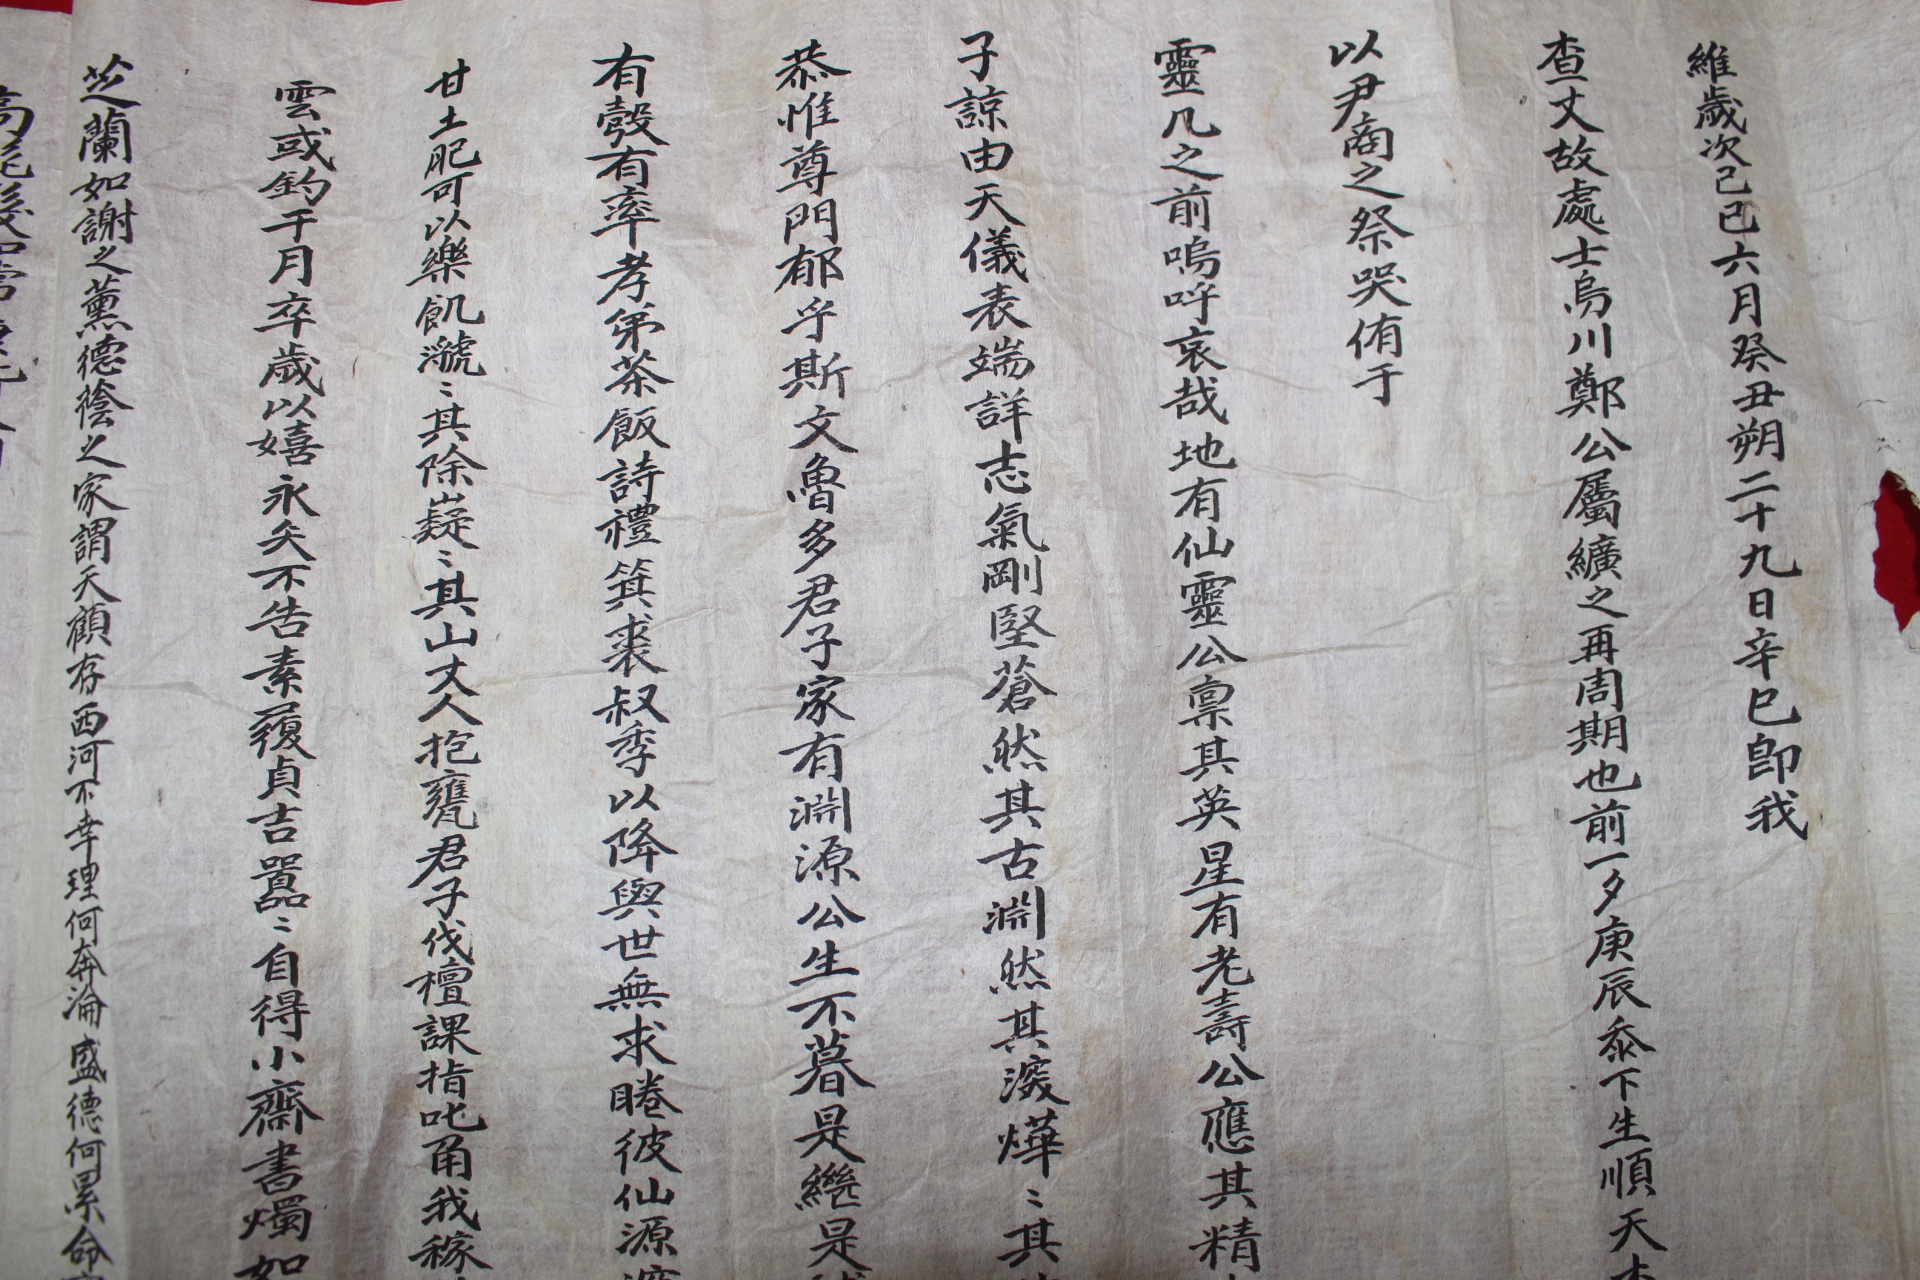 維歲次己巳六月癸丑朔二十九日辛巳卽我
查丈故處士烏川鄭公屬纊之再周期也前一夕庚辰忝下生順天
以尹商之祭哭侑于
靈几之前嗚呼哀哉地有仙靈公稟其英星有老壽公應其精
子諒由天儀表端詳志氣剛堅蒼然其古淵然其深燁〻其
恭惟尊門郁乎斯文魯多君子家有淵源公生不暮是繼是
有穀有率孝弟茶飯詩禮箕裘叔季以降與世無求睠彼仙源
甘土肥可以樂飢㶁〻其除嶷〻其山丈人抱甕君子伐檀課指叱甬我稼
雲或釣于月卒歲以嬉永矢不告素履貞吉囂〻自得小齋書燭如
芝蘭如謝之薰德蔭之家謂天顧存西河不幸理何奔淪盛德何累命
高